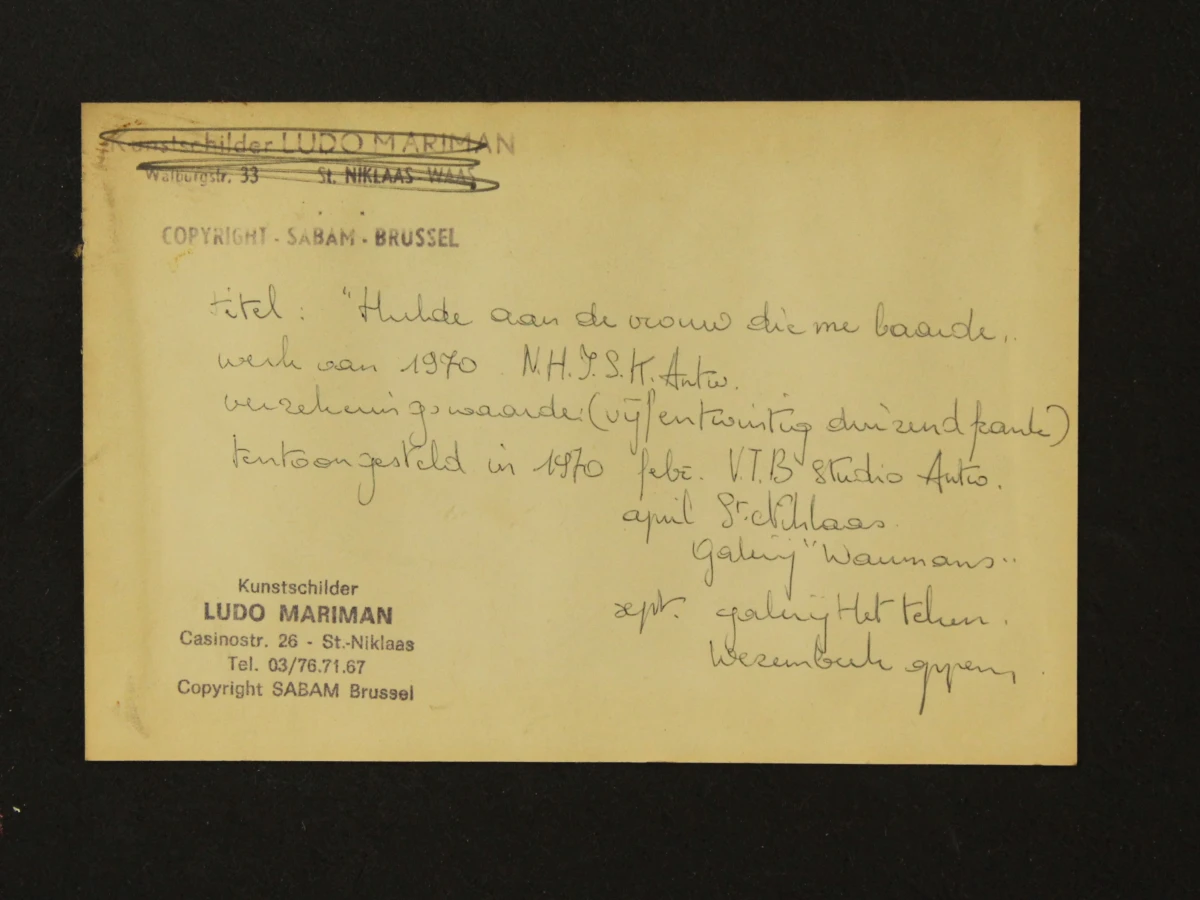 Kunstschilder LUDO MARIMAN
Walburgstr. 33 St. NIKLAAS-WAAS
COPYRIGHT - SABAM - BRUSSEL
titel: "Hulde aan de vrouw die me baarde"
werk van 1970 N.H.I.S.K. Antw.
verzekeringswaarde: (vijfentwintig duizend frank)
tentoongesteld in 1970 febr. V.T.B studio Antw.
april St. Niklaas
Galerij "Waumans"
sept. galerij Het teken.
Wezembeek oppem
Kunstschilder
LUDO MARIMAN
Casinostr. 26 - St.-Niklaas
Tel. 03/76.71.67
Copyright SABAM Brussel